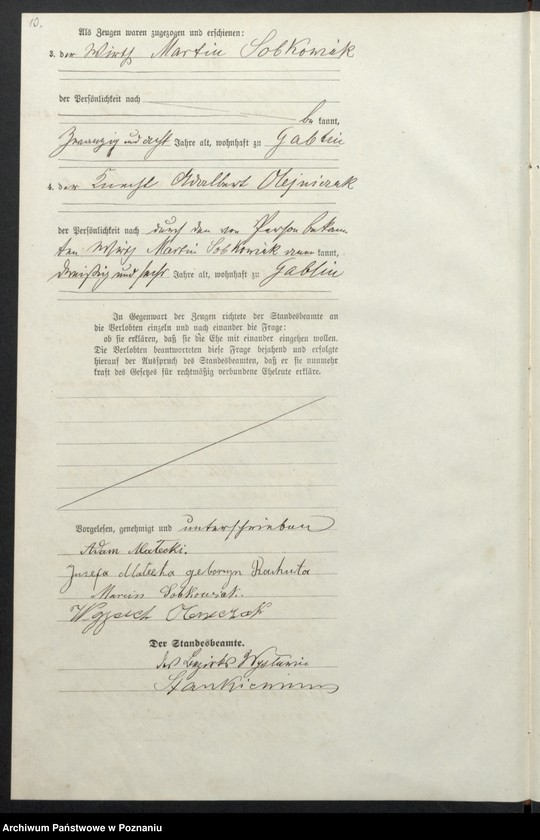 10.
Als Zeugen waren zugezogen und erschienen:
3. der Wirth Martin Sobkowiak
der Persönlichkeit nach
be kannt,
Zwanzig und acht Jahre alt, wohnhaft zu Gablin
4. der Knecht Adalbert Olejniczak
der Persönlichkeit nach durch den von Person bekann
ten Wirth Martin Sobkowiak aner kannt,
dreißig und sechs Jahre alt, wohnhaft zu Gablin
In Gegenwart der Zeugen richtete der Standesbeamte an
die Verlobten einzeln und nach einander die Frage:
ob sie erklären, daß sie die Ehe mit einander eingehen wollen.
Die Verlobten beantworteten diese Frage bejahend und erfolgte
hierauf der Ausspruch des Standesbeamten, daß er sie nunmehr
kraft des Gesetzes für rechtmäßig verbundene Eheleute erkläre.
Vorgelesen, genehmigt und unterschrieben
Adam Małecki.
Jusefa Małecka geboryn Rachuta
Marcin Sobkowiak.
Der Standesbeamte.
des Bezirks
Archiwum Państwowe w Poznaniu